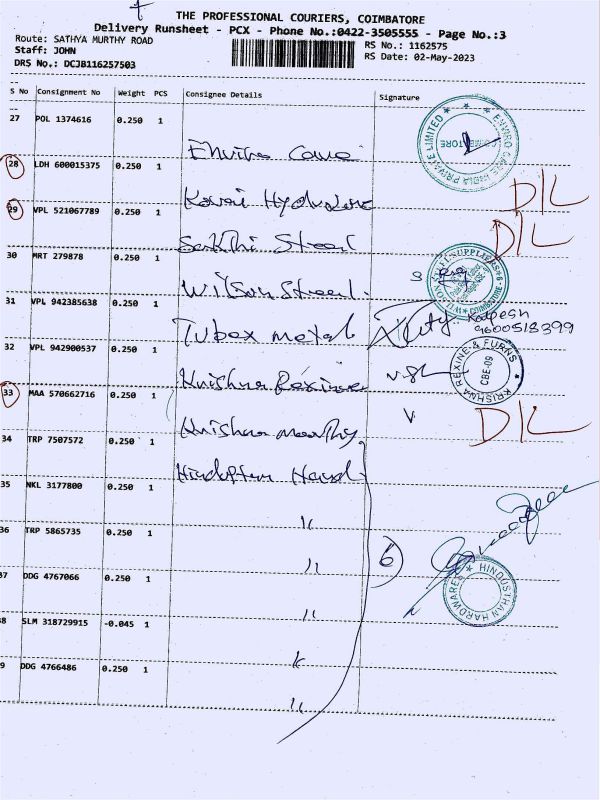 THE PROFESSIONAL COURIERS, COIMBATORE
Delivery Runsheet - PCX - Phone No.:0422-3505555 - Page No.:3
Route: SATHYA MURTHY ROAD
RS No.: 1162575
Staff: JOHN
RS Date: 02-May-2023
DRS No.: DCJB116257503
S No Consignment No Weight PCS Consignee Details Signature
27 POL 1374616 0.250 1
Enviro Care
ENVIRO CARE INDIA PRIVATE LIMITED COIMBATORE
28 LDH 600015375 0.250 1
Kovai Hydraulic D/L
29 VPL 521067789 0.250 1
Sakthi Steel D/L
30 MRT 279878 0.250 1
Wilson Steel
SUPPLIERS COIMBATORE
31 VPL 942385638 0.250 1
Tubex metal Kalpesh
9600518399
32 VPL 942900537 0.250 1
Krishna Rexine
KRISHNA REXINE & FURNS CBE-09
33 MAA 570662716 0.250 1
Krishna moorthy D/L
34 TRP 7507572 0.250 1
Hindustan Hard
35 NKL 3177800 0.250 1
"
36 TRP 5865735 0.250 1
" 6
37 DDG 4767066 0.250 1
HINDUSTHAN HARDWARES
"
38 SLM 318729915 -0.045 1
"
39 DDG 4766486 0.250 1
"